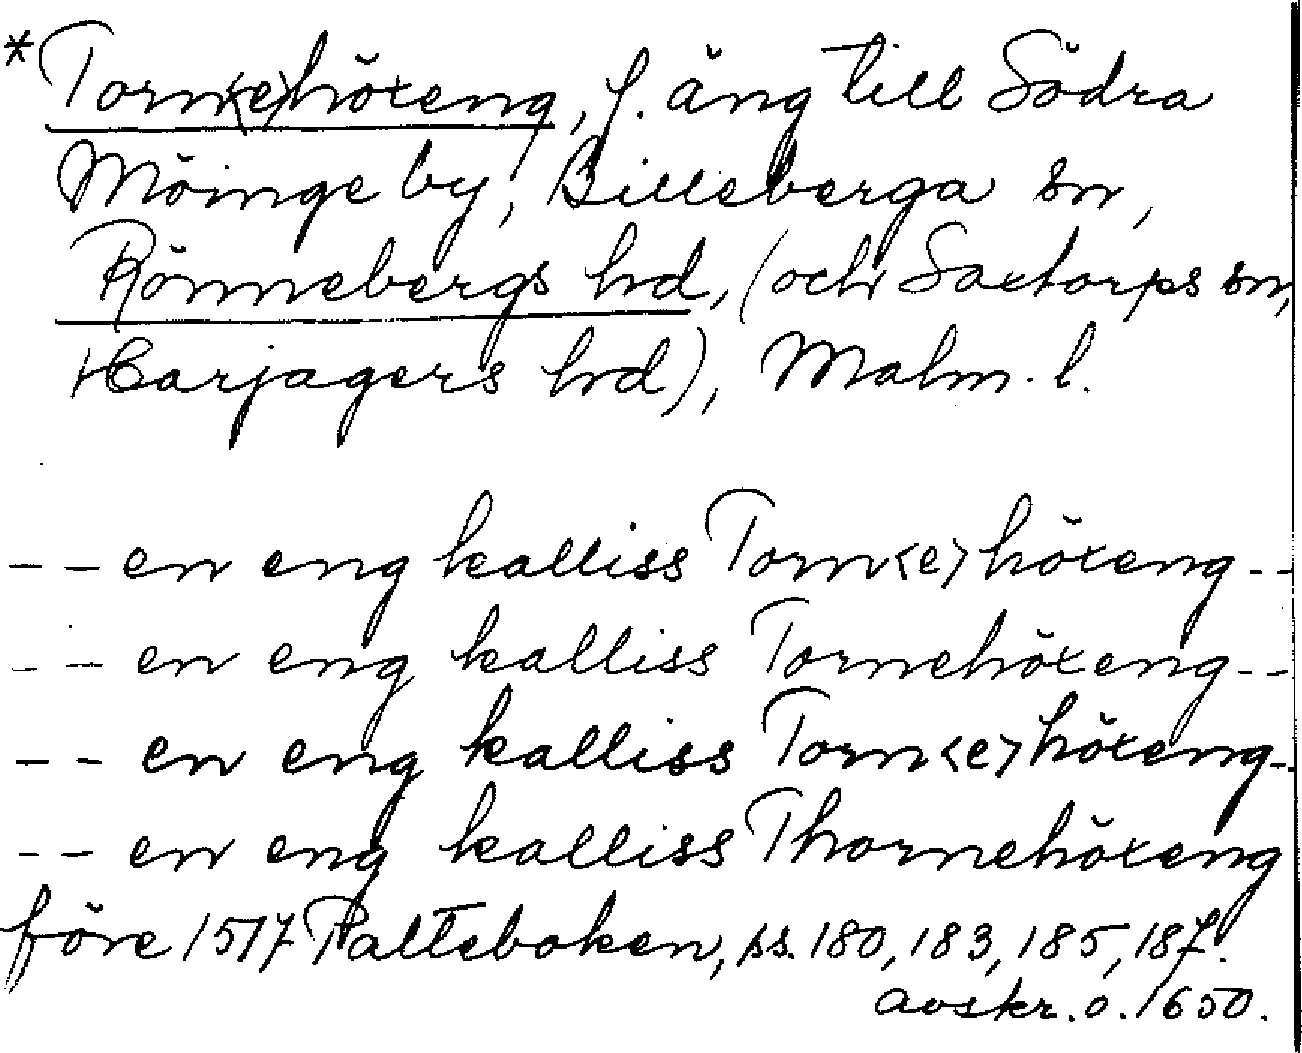 *Torn<e>höxeng, f. äng till Södra
Möinge by, Billeberga sn,
Rönnebergs hd, (och Saxtorps sn,
Harjagers hd), Malm. l.
-- en eng kalliss Torn<e>höxeng --
-- en eng kalliss Tornehöxeng --
-- en eng kalliss Torn<e>höxeng -
-- en eng kalliss Thornehöxeng
före 1517 Palteboken, ss. 180, 183, 185, 187.
avskr. o. 1650.